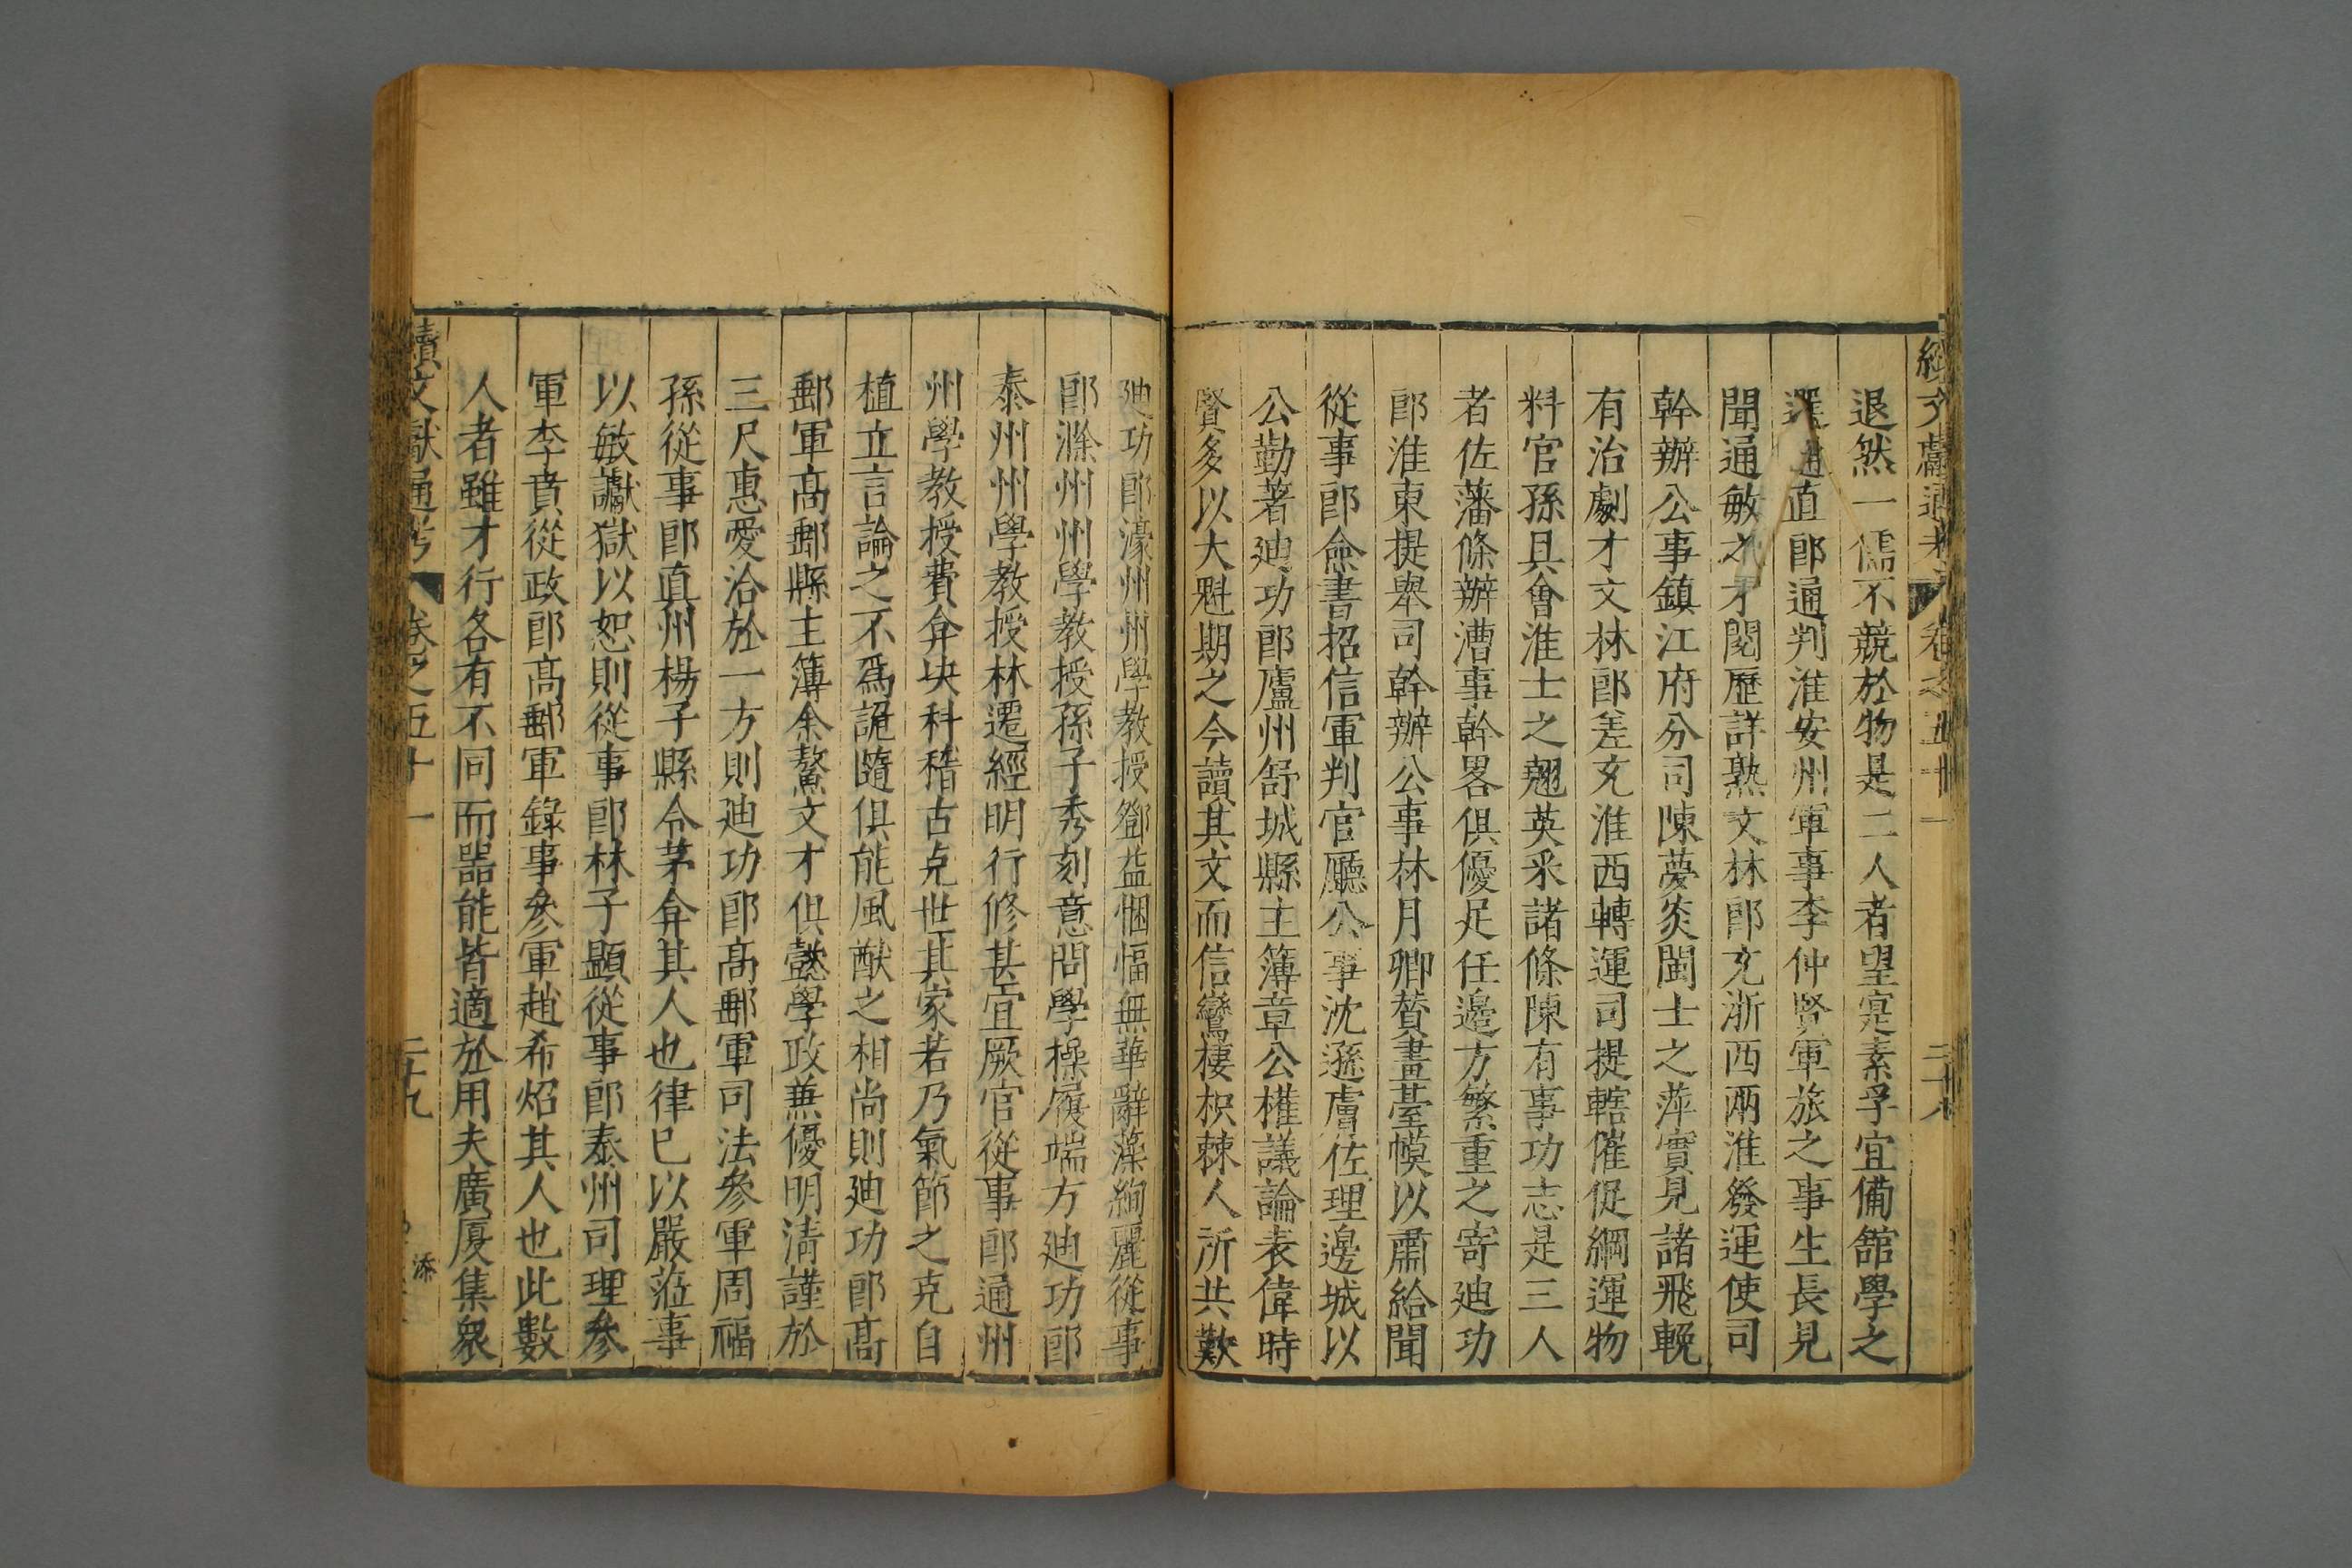 續文獻通考 卷之五十一 二十八
退然一儒不競於物是二人者望寔素孚宜備舘學之
選通直郎通判淮安州軍事李仲賢軍旅之事生長見
聞通敏之才閱歷詳熟文林郎充浙西兩淮發運使司
幹辦公事鎮江府分司陳夢炎閩士之萍實見諸飛輓
有治劇才文林郎差充淮西轉運司提轄催促綱運物
料官孫具會淮士之翹英釆諸條陳有事功志是三人
者佐藩條辦漕事幹畧俱優足任邊方繁重之寄廸功
郎淮東提舉司幹辦公事林月卿賛畫䑓幙以肅給聞
從事郎僉書招信軍判官廳公事沈遜膚佐理邊城以
公勤著廸功郎廬州舒城縣主簿章公權議論表偉時
賢多以大魁期之今讀其文而信鸞棲枳棘人所共歎
廸功郎濠州州學教授鄧益悃愊無華辭藻絢麗從事
郎滁州州學教授孫子秀刻意問學操履端方廸功郎
泰州州學教授林遷經明行修甚宜厥官從事郎通州
州學教授費弇决科稽古克世其家若乃氣節之克自
植立言論之不爲詭隨俱能風猷之相尚則廸功郎高
郵軍高郵縣主簿余鰲文才俱懿學政兼優明清謹於
三尺惠愛洽於一方則廸功郎高郵軍司法參軍周福
孫從事郎真州楊子縣令茅弇其人也律已以嚴蒞事
以敏讞獄以恕則從事郎林子顯從事郎泰州司理參
軍李賁從政郎高郵軍錄事參軍趙希炤其人也此數
人者雖才行各有不同而器能皆適於用夫廣厦集衆
續文獻通考 卷之五十一 二十九
添